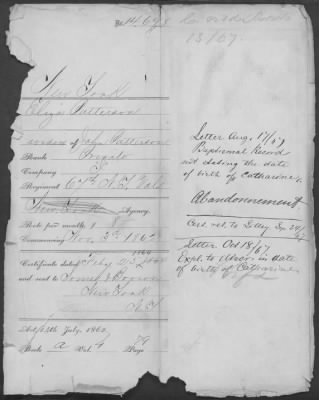 No. 14,698
13/67.
New York
Eliza Patterson
widow of John Patterson
Rank Private
Company I
Regiment 67th N.Y. Vols
New York Agency.
Rate per month $8
Commencing Nov. 3d 1862
Certificate dated Feby 25
and sent to
New York
N.Y.
Act 14th July, 1862.
Book A Vol. 4 Page 79
Letter Aug. 17/67
Baptismal Record
not stating the date
of birth of Catharine.
Abandonment
Letter Oct 18/67
Expl. to error in date
of birth of Catharine